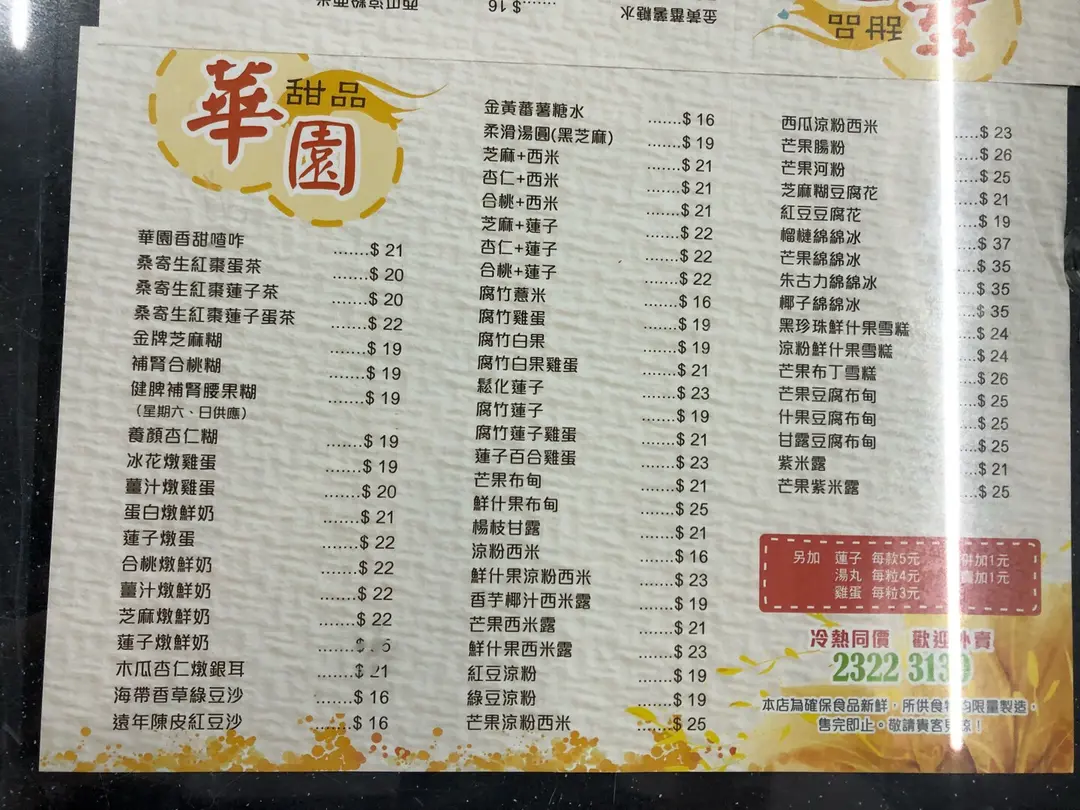 西瓜涼粉西米 ........$ 16 金黃蕃薯糖水
甜品
華
華園
甜品
華園香甜喳咋 .......$ 21
桑寄生紅棗蛋茶 .......$ 20
桑寄生紅棗蓮子茶 .......$ 20
桑寄生紅棗蓮子蛋茶 .......$ 22
金牌芝麻糊 .......$ 19
補腎合桃糊 .......$ 19
健脾補腎腰果糊 .......$ 19
(星期六、日供應)
養顏杏仁糊 .......$ 19
冰花燉雞蛋 .......$ 19
薑汁燉雞蛋 .......$ 20
蛋白燉鮮奶 .......$ 21
蓮子燉蛋 .......$ 22
合桃燉鮮奶 .......$ 22
薑汁燉鮮奶 .......$ 22
芝麻燉鮮奶 .......$ 22
蓮子燉鮮奶
木瓜杏仁燉銀耳 .......$ 21
海帶香草綠豆沙 .......$ 16
遠年陳皮紅豆沙 .......$ 16
金黃蕃薯糖水 .......$ 16
柔滑湯圓(黑芝麻) .......$ 19
芝麻+西米 .......$ 21
杏仁+西米 .......$ 21
合桃+西米 .......$ 21
芝麻+蓮子 .......$ 22
杏仁+蓮子 .......$ 22
合桃+蓮子 .......$ 22
腐竹薏米 .......$ 16
腐竹雞蛋 .......$ 19
腐竹白果 .......$ 19
腐竹白果雞蛋 .......$ 21
鬆化蓮子 .......$ 23
腐竹蓮子 .......$ 19
腐竹蓮子雞蛋 .......$ 21
蓮子百合雞蛋 .......$ 23
芒果布甸 .......$ 21
鮮什果布甸 .......$ 25
楊枝甘露 .......$ 21
涼粉西米 .......$ 16
鮮什果涼粉西米 .......$ 23
香芋椰汁西米露 .......$ 19
芒果西米露 .......$ 21
鮮什果西米露 .......$ 23
紅豆涼粉 .......$ 19
綠豆涼粉 .......$ 19
芒果涼粉西米 .......$ 25
西瓜涼粉西米 ....$ 23
芒果腸粉 ....$ 26
芒果河粉 ....$ 25
芝麻糊豆腐花 ....$ 21
紅豆豆腐花 ....$ 19
榴槤綿綿冰 ....$ 37
芒果綿綿冰 ....$ 35
朱古力綿綿冰 ....$ 35
椰子綿綿冰 ....$ 35
黑珍珠鮮什果雪糕 ....$ 24
涼粉鮮什果雪糕 ....$ 24
芒果布丁雪糕 ....$ 26
芒果豆腐布甸 ....$ 25
什果豆腐布甸 ....$ 25
甘露豆腐布甸 ....$ 25
紫米露 ....$ 21
芒果紫米露 ....$ 25
另加 蓮子 每款5元 加1元
湯丸 每粒4元 加1元
雞蛋 每粒3元
冷熱同價 歡迎外賣
2322 3139
本店為確保食品新鮮，所供食物均限量製造，
售完即止。敬請貴客見諒！